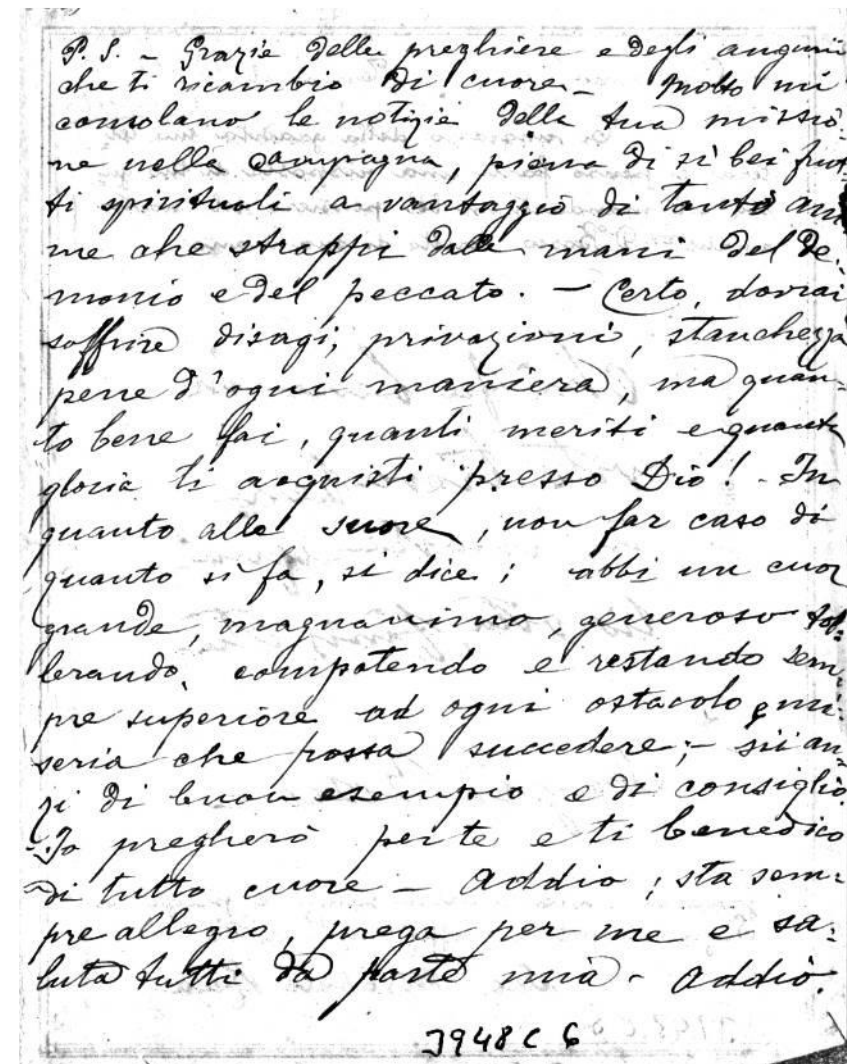 P. S. – Grazie delle preghiere e degli auguri
che ti ricambio di cuore – Molto mi
consolano le notizie della tua missio-
ne nella campagna, piena di sì bei frut-
ti spirituali a vantaggio di tante ani
me che strappi dalle mani del de-
monio e del peccato. – Certo, dovrai
soffrire disagi, privazioni, stanchezza
pene d'ogni maniera, ma quan-
to bene fai, quanti meriti e quanta
gloria ti acquisti presso Dio! – In
quanto alle suore, non far caso di
quanto si fa, si dice; abbi un cuor
grande, magnanimo, generoso tol-
lerando, compatendo e restando sem-
pre superiore ad ogni ostacolo e mi-
seria che possa succedere; – sii an-
zi di buon esempio e di consiglio.
– Io pregherò per te e ti benedico
di tutto cuore – Addio; sta sem-
pre allegro, prega per me e sa-
luta tutti da parte mia – Addio.
3948 C 6